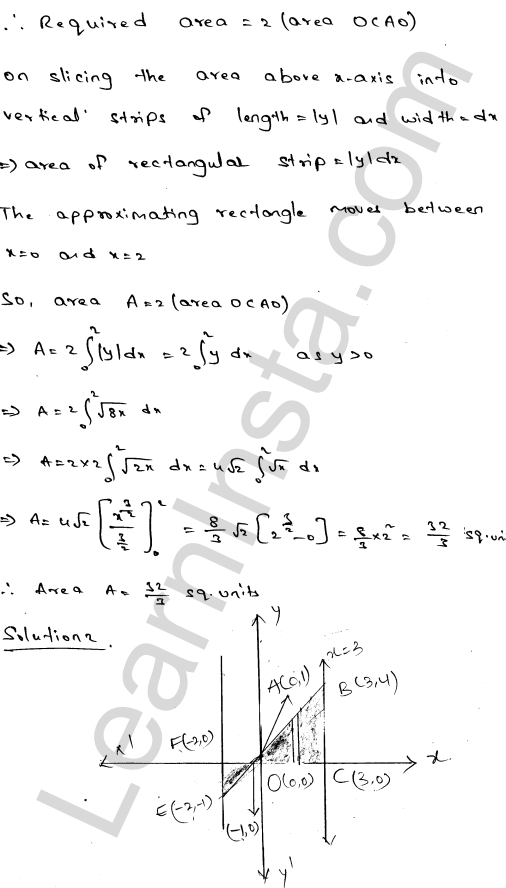 ∴ Required area = 2 (area OCAO)
on slicing the area above x-axis into
vertical strips of length = |y| and width = dx
⇒ area of rectangular strip = |y|dx
The approximating rectangle moves between
x=0 and x=2
So, area A=2 (area OCAO)
⇒ A = 2 ∫₀² |y|dx = 2 ∫₀² y dx as y>0
⇒ A = 2 ∫₀² √8x dx
⇒ A=2×2 ∫₀² √2x dx = 4√2 ∫₀² √x dx
⇒ A= 4√2 [x^(3/2) / (3/2)]₀² = 8/3 √2 [2^(3/2) - 0] = 8/3 × 2² = 32/3 sq.uni
∴ Area A = 32/3 sq.units
Solution 2.
y
x=3
A(0,1)
B(3,4)
x'
F(-2,0)
x
O(0,0)
C(3,0)
E(-2,-1)
(-1,0)
y'
LearnInsta.com